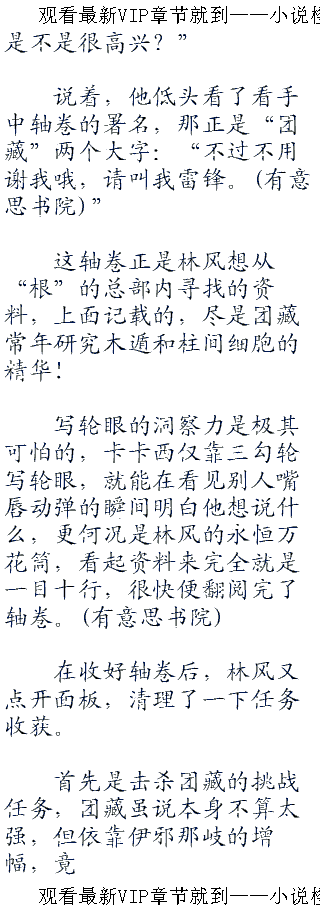 观看最新VIP章节就到——小说检
是不是很高兴？”
说着，他低头看了看手
中轴卷的署名，那正是“团
藏”两个大字：“不过不用
谢我哦，请叫我雷锋。(有意
思书院)”
这轴卷正是林风想从
“根”的总部内寻找的资
料，上面记载的，尽是团藏
常年研究木遁和柱间细胞的
精华！
写轮眼的洞察力是极其
可怕的，卡卡西仅靠三勾轮
写轮眼，就能在看见别人嘴
唇动弹的瞬间明白他想说什
么，更何况是林风的永恒万
花筒，看起资料来完全就是
一目十行，很快便翻阅完了
轴卷。(有意思书院)
在收好轴卷后，林风又
点开面板，清理了一下任务
收获。
首先是击杀团藏的挑战
任务，团藏虽说本身不算太
强，但依靠伊邪那岐的增
幅，竟
观看最新VIP章节就到——小说检